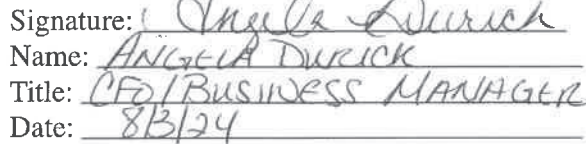 Signature: Angela Durick
Name: ANGELA DURICK
Title: CFO/BUSINESS MANAGER
Date: 8/3/24